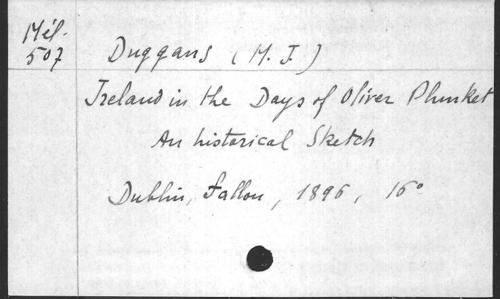 Mél.
507
Duggans (M. J.)
Ireland in the Days of Oliver Plunket
An historical Sketch
Dublin, Fallon, 1896, 16°